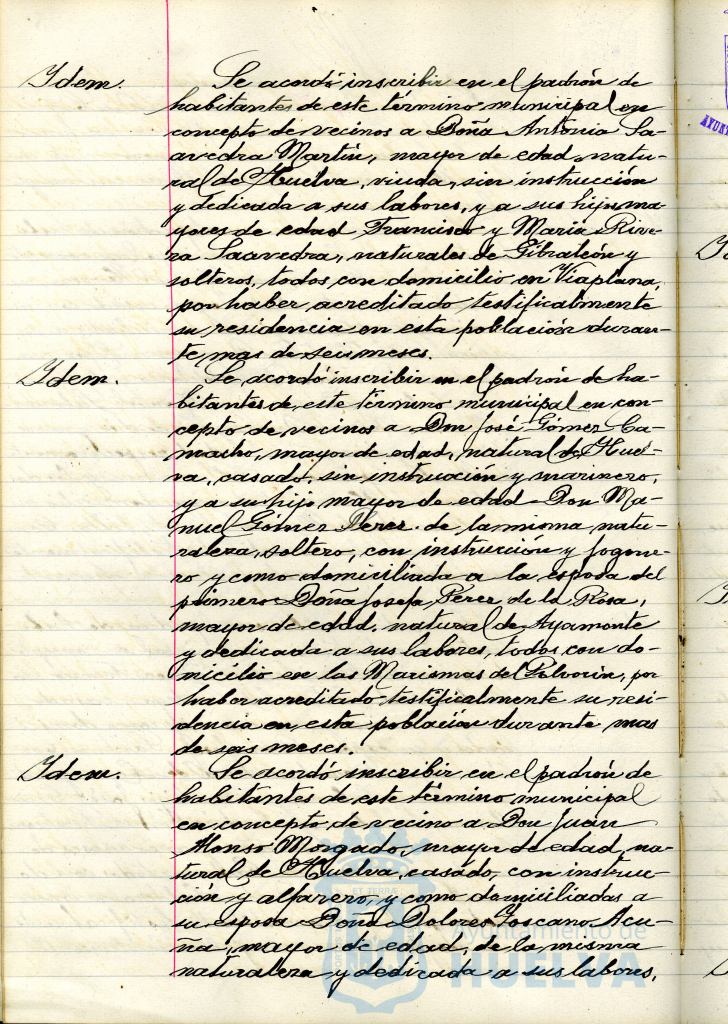 Idem.
Se acordó inscribir en el padrón de
habitantes de este término municipal en
concepto de vecinos a Doña Antonia Sa-
avedra Martín, mayor de edad, natu-
ral de Huelva, viuda, sin instrucción
y dedicada a sus labores, y a sus hijos ma-
yores de edad Francisco y María Rive-
ra Saavedra, naturales de Gibraleón y
solteros, todos con domicilio en Viaplana,
por haber acreditado testificalmente
su residencia en esta población duran-
te mas de seis meses.
Idem.
Se acordó inscribir en el padrón de ha-
bitantes de este término municipal en con-
cepto de vecinos a Don José Gómez Ca-
macho, mayor de edad, natural de Huel-
va, casado, sin instrucción y marinero,
y a su hijo mayor de edad Don Ma-
nuel Gómez Perez de la misma natu-
raleza, soltero, con instrucción y fogone-
ro y como domiciliada a la esposa del
primero Doña Josefa Perez de la Rosa,
mayor de edad, natural de Ayamonte
y dedicada a sus labores, todos con do-
micilio en las Marismas del Polvorín, por
haber acreditado testificalmente su resi-
dencia en esta población durante mas
de seis meses.
Idem.
Se acordó inscribir en el padrón de
habitantes de este término municipal
en concepto de vecino a Don Juan
Alonso Morgado, mayor de edad, na-
tural de Huelva, casado, con instruc-
ción y alfarero, y como domiciliadas a
su esposa Doña Dolores Toscano Acu-
ña, mayor de edad, de la misma
naturaleza y dedicada a sus labores,
Ayuntamiento de
HUELVA